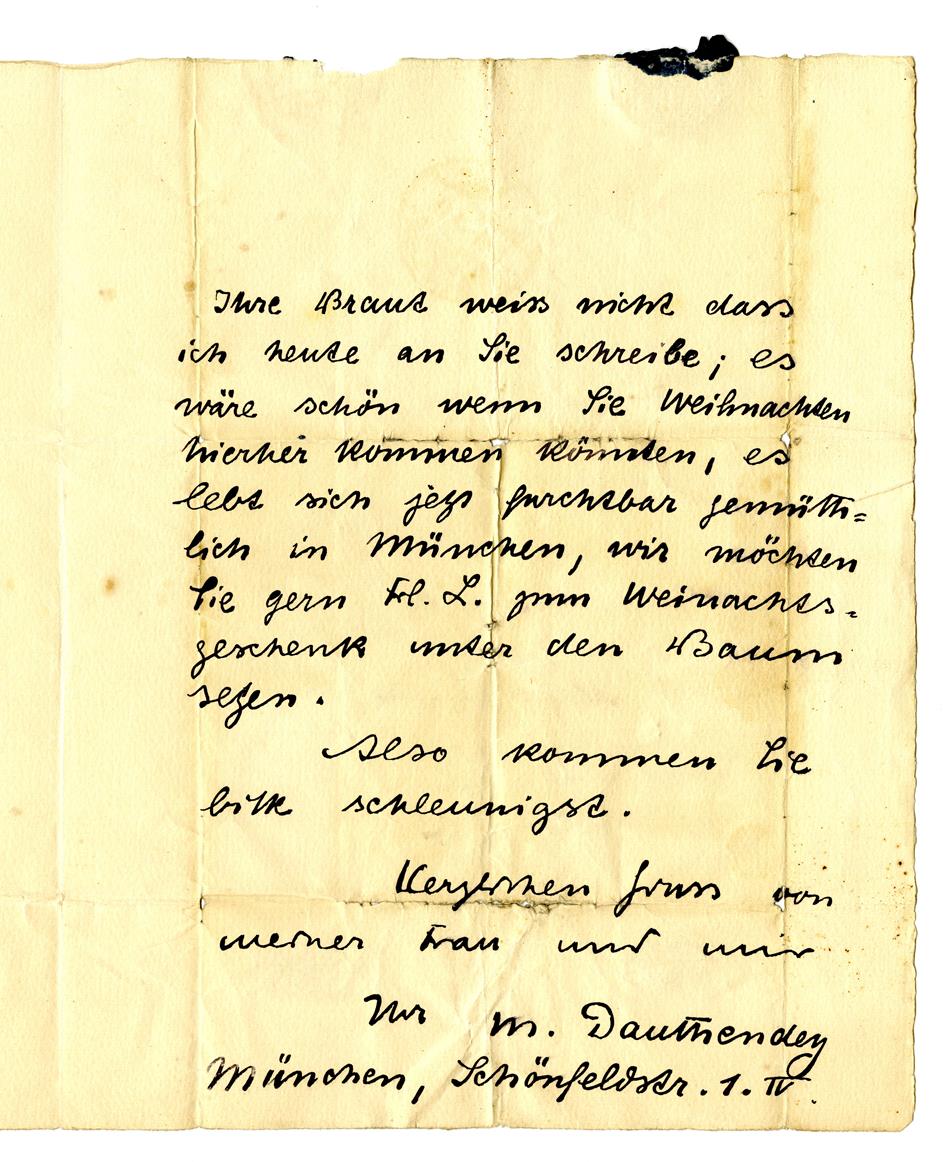 Ihre Braut weiss nicht dass
ich heute an Sie schreibe; es
wäre schön wenn Sie Weihnachten
hierher kommen könnten, es
lebt sich jezt furchtbar gemüth=
lich in München, wir möchten
Sie gern Frl. L. zum Weinachts=
geschenk unter den Baum
sezen.
Also kommen Sie
bitte schleunigst.
Herzlichen Gruss von
meiner Frau und mir
Ihr M. Dauthendey
München, Schönfeldstr. 1. IV.